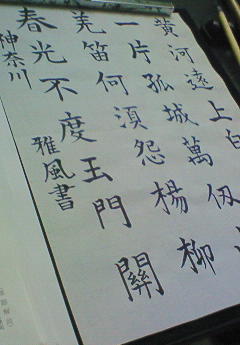 黄河遠上白
一片孤城萬仞
羌笛何湏怨楊柳
春光不度玉門關
神奈川 雅風書